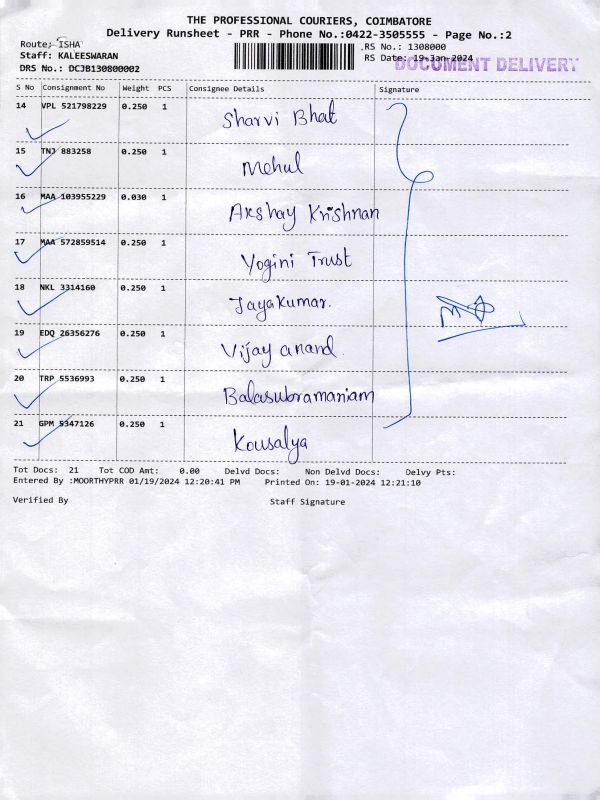 THE PROFESSIONAL COURIERS, COIMBATORE
Delivery Runsheet - PRR - Phone No.:0422-3505555 - Page No.:2
Route; ISHA
.RS No.: 1308000
Staff: KALEESWARAN
RS Date: 19-Jan-2024
DOCUMENT DELIVERY
DRS No.: DCJB130800002
S No Consignment No Weight PCS Consignee Details Signature
14 VPL 521798229 0.250 1 Sharvi Bhat
15 TNJ 883258 0.250 1 Mehul
16 MAA 103955229 0.030 1 Akshay Krishnan
17 MAA 572859514 0.250 1 Yogini Trust
18 NKL 3314160 0.250 1 Jayakumar.
19 EDQ 26356276 0.250 1 Vijay anand
20 TRP 5536993 0.250 1 Balasubramaniam
21 GPM 5347126 0.250 1 Kousalya
Tot Docs: 21 Tot COD Amt: 0.00 Delvd Docs: Non Delvd Docs: Delvy Pts:
Entered By :MOORTHYPRR 01/19/2024 12:20:41 PM Printed On: 19-01-2024 12:21:10
Verified By Staff Signature